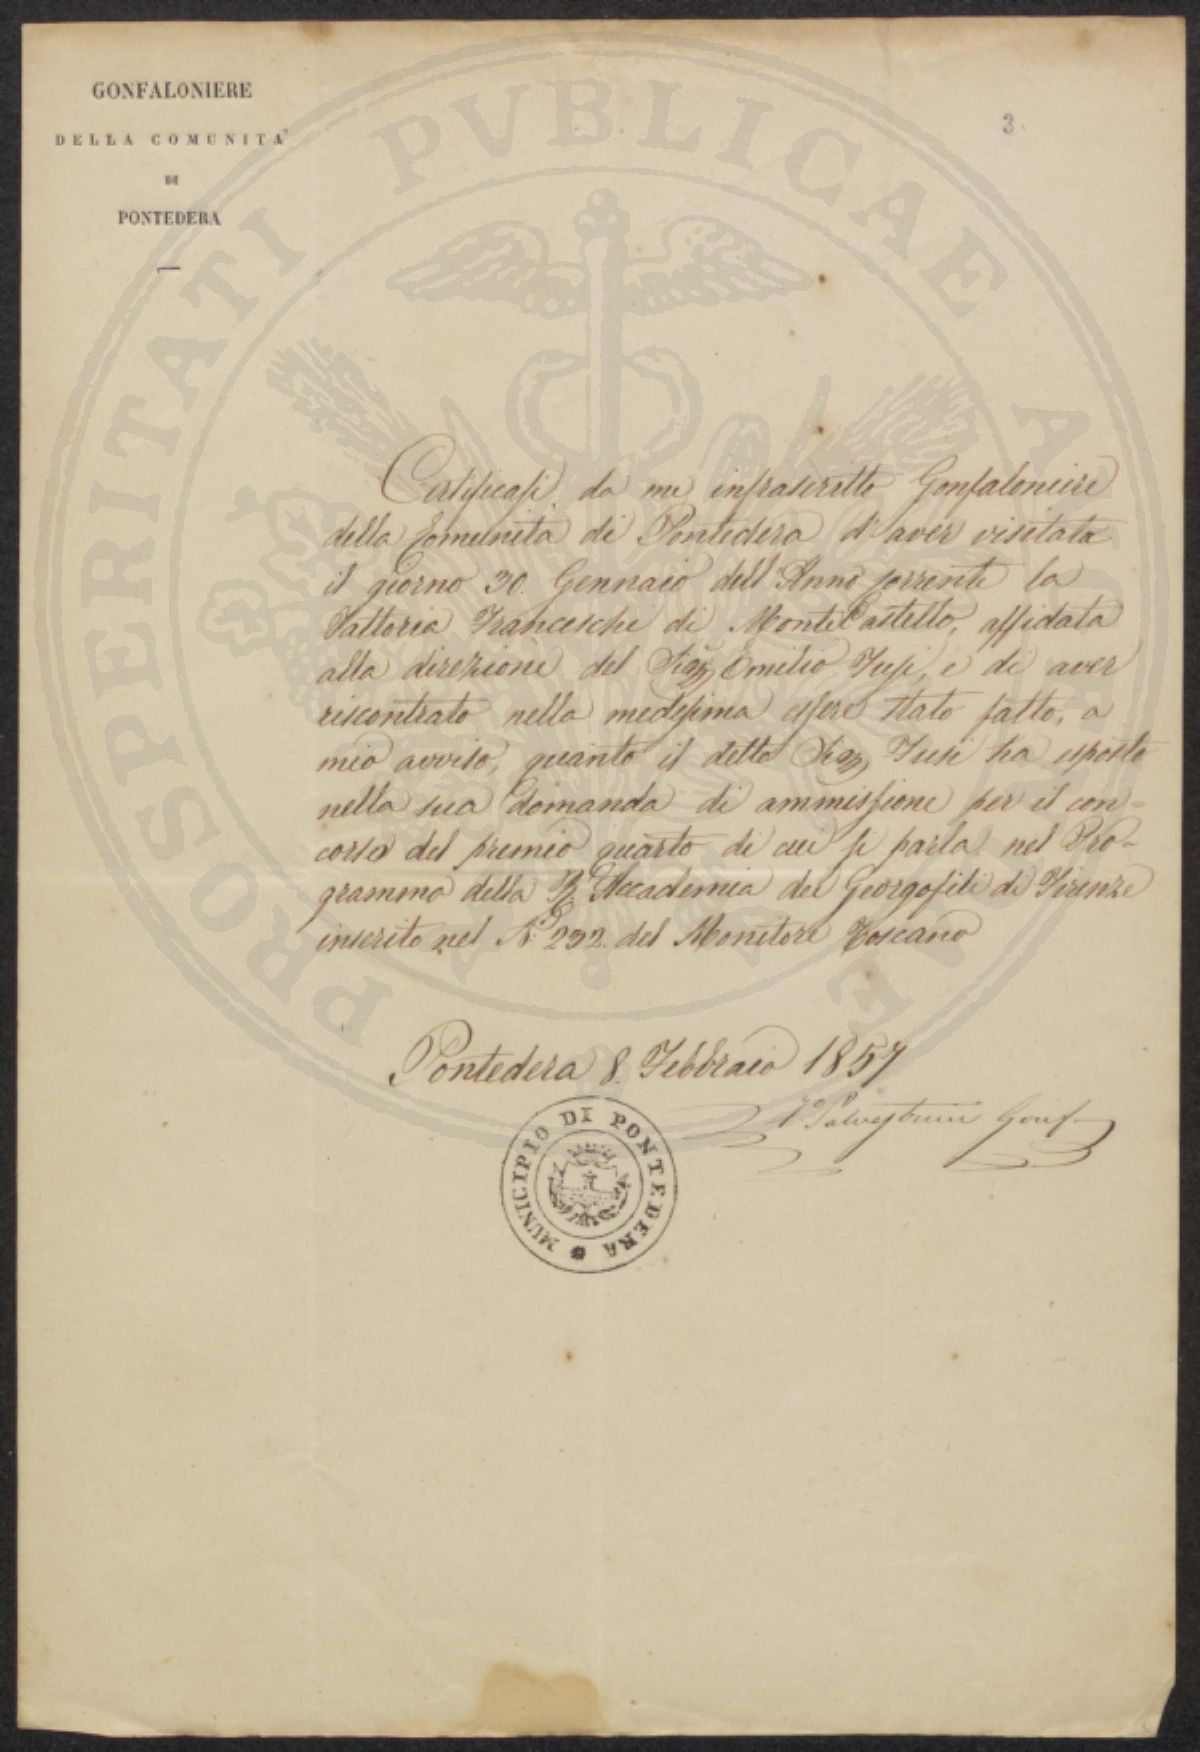 GONFALONIERE
DELLA COMUNITA'
DI
PONTEDERA
3.
PROSPERITATI PUBLICAE AUGENDAE
Certificasi da me infrascritto Gonfaloniere
della Comunità di Pontedera d'aver visitata
il giorno 30. Gennaio dell'Anno corrente la
Fattoria Franceschi di MonteCastello, affidata
alla direzione del Sig. Emilio, e di aver
riscontrato nella medesima essere stato fatto, a
mio avviso, quanto il detto Sig. ha esposto
nella sua domanda di ammissione per il con=
corso del premio quarto di cui si parla nel Pro-
gramma della R. Accademia dei Georgofili di Firenze
inserito nel N. 232. del Monitore Toscano
Pontedera 8. Febbraio 1857
Gonf
MUNICIPIO DI PONTEDERA